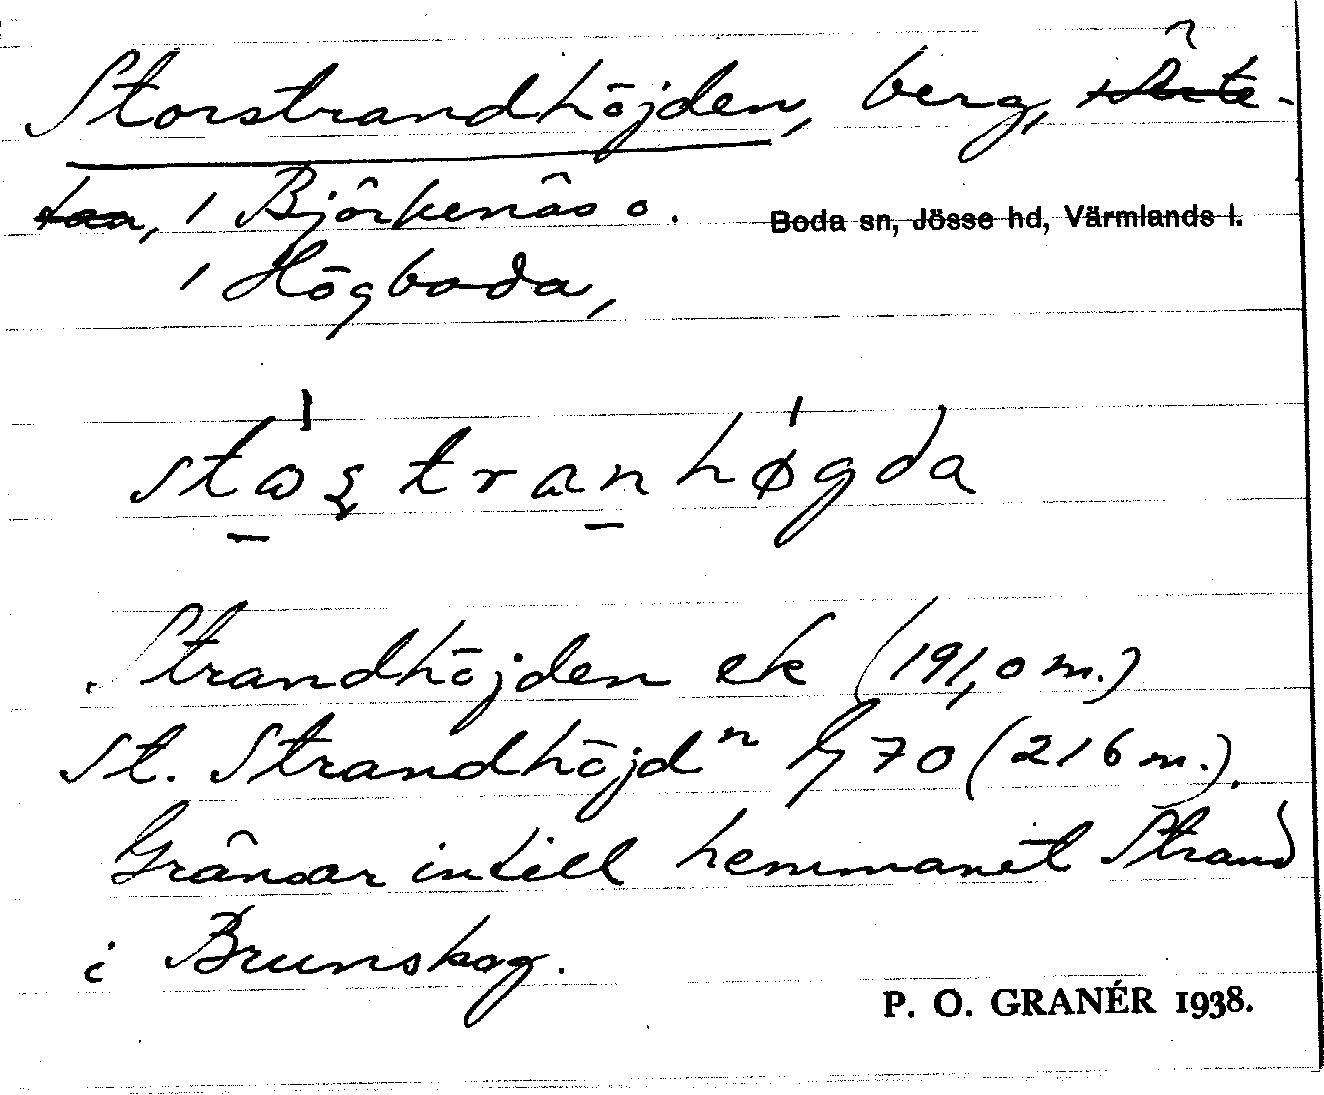 Storstrandhöjden, berg,
, i Björkenäs o. Boda sn, Jösse hd, Värmlands l.
i Högboda,
Strandhöjden ek (191,0 m.)
St. Strandhöjdn hj 70 (216 m.).
Gränsar intill hemmanet Strand
i Brunskog.
P. O. GRANÉR 1938.